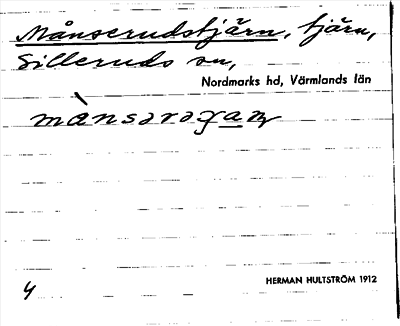 Månserudstjärn, tjärn,
Silleruds sn,
Nordmarks hd, Värmlands län
HERMAN HULTSTRÖM 1912
4